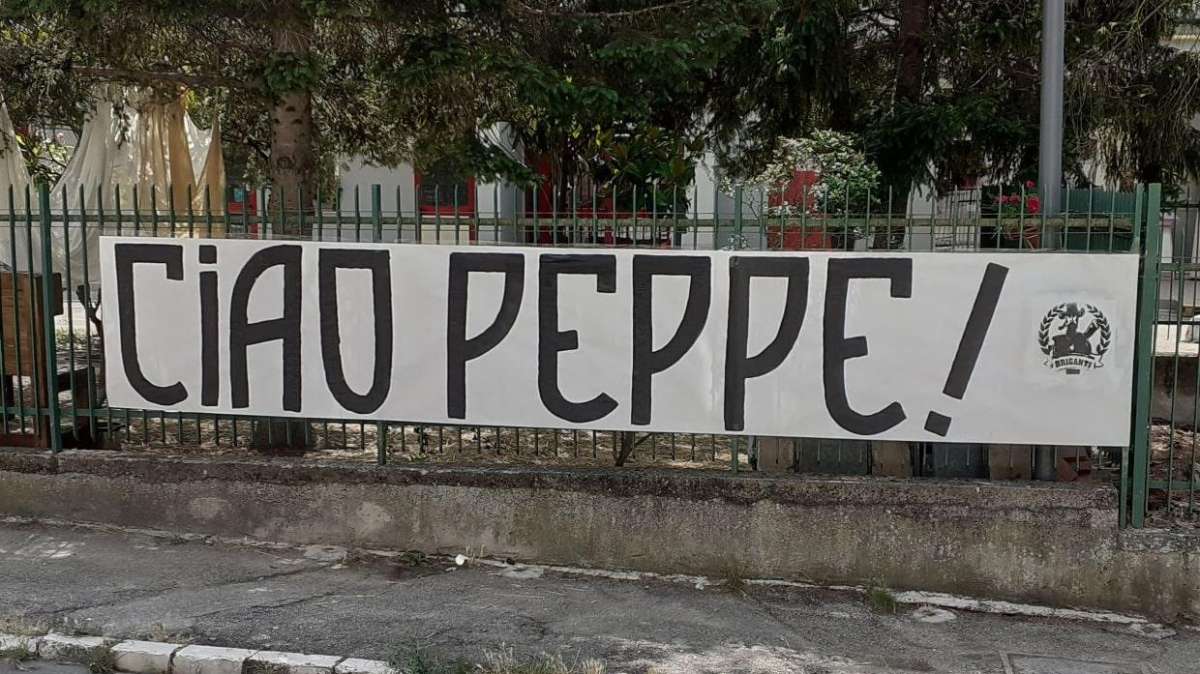 CIAO PEPPE!
BRIGANTI